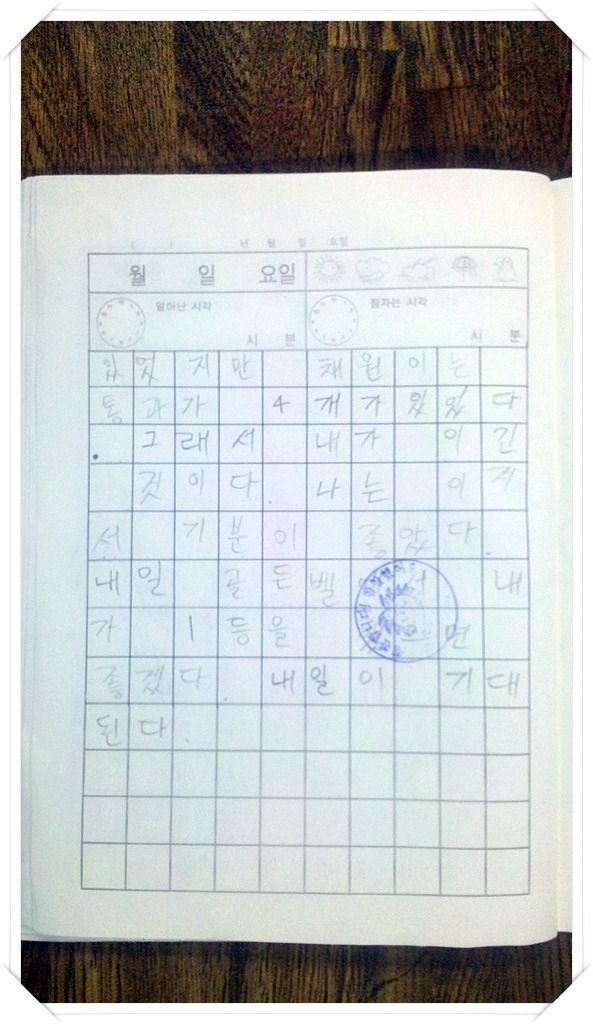 ( ) 년 월 일 요일
월 일 요일
일어난 시각 잠자는 시각
시 분 시 분
있었지만 채원이는
통과가 4개가 있었다
. 그래서 내가 이긴
것이다. 나는 이겨
서 기분이 좋았다.
내일 골든벨 서 내
가 1등을 면
좋겠다. 내일이 기대
된다.